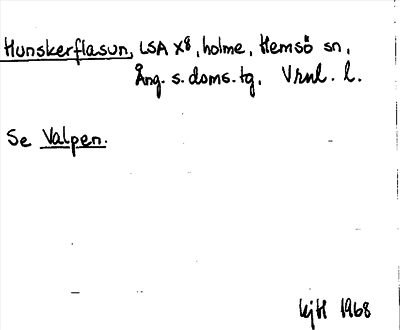 Hunskerflasun, LSA X8, holme, Hemsö sn,
Ång. s. doms. tg. Vrnl. l.
Se Valpen.
KjH 1968